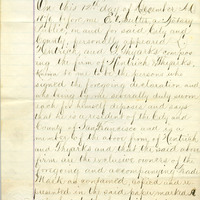 On this 12th day of December A.D.
1876 before me E. V. Sutter, a Notary
Public, in and for said City and
County personally appeared C.
Hentrich and C. Thyarks compos-
ing the firm of Hentrich & Thyarks,
known to me to be the persons who
signed the foregoing declaration and
and being by me severally duly sworn
each for himself deposes and says
that he is a resident of the City and
County of San Francisco and is a
member of the above firm of Hentrich
and Thyarks and that the said above
firm are the exclusive owners of the
foregoing and accompanying Trade
Mark as contained, copied and re-
presented in the said paper marked